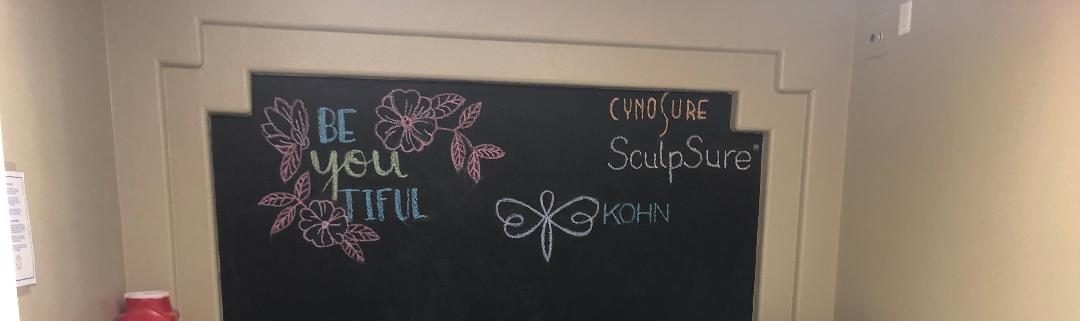 BE
you
TIFUL
CYNOSURE
SculpSure®
KOHN